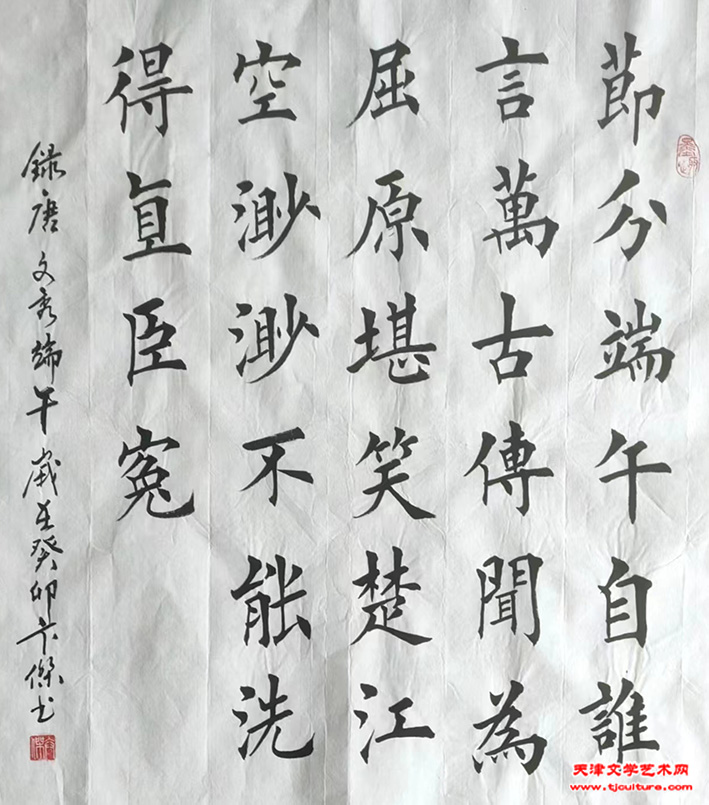 節分端午自誰
言萬古傳聞為
屈原堪笑楚江
空渺渺不能洗
得直臣冤
録唐文秀端午歲在癸卯卞傑书
天津文学艺术网
www.tjculture.com